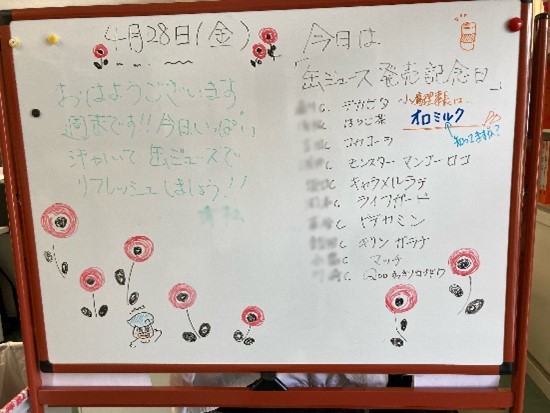 4月28日(金)
おはようございます
週末です!!今日もいっぱい
汗かいて缶ジュースで
リフレッシュしましょう!!
今日は
「缶ジュース発売記念日」
C. デカビタ
C. ほうじ茶
C. コカコーラ
C. モンスター マンゴーロコ
C. キャラメルラテ
C. ライフガード
C. ビタミン
C. キリン ガラナ
C. マッチ
C. Qoo
は…
オロミルク
知ってますか?